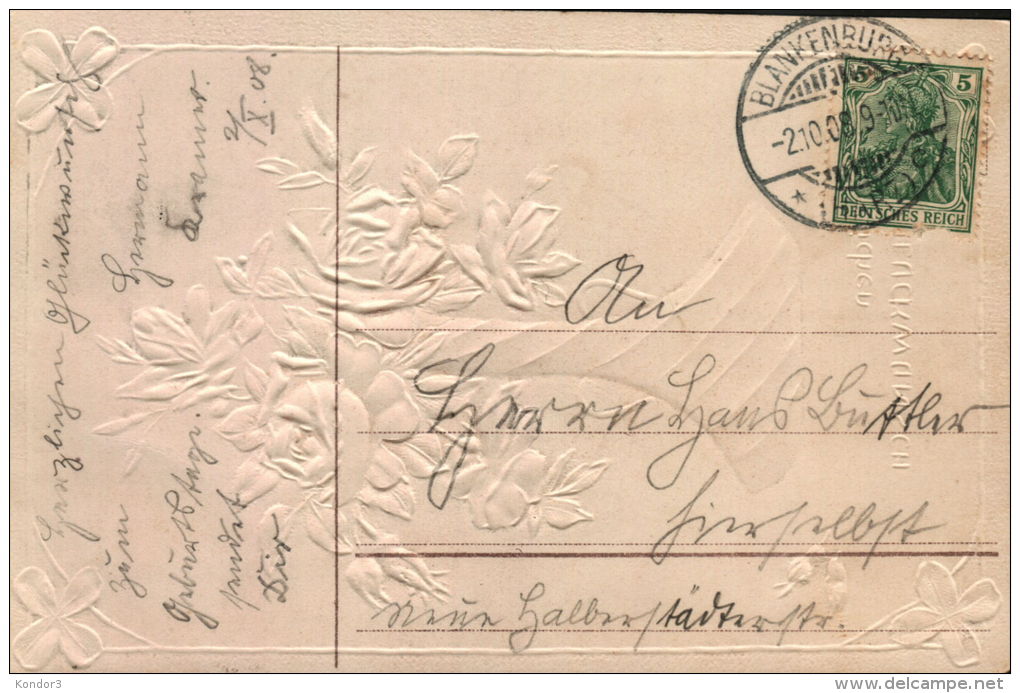 Herzlichen Glückwunsch
zum
Geburtstage.
sendet
Dir
Hermann
2/X.08.
BLANKENBURG
-2.10.08 9-10
5
5
DEUTSCHES REICH
An
Herrn Hans Buttler
hierselbst
Neue Halberstädterstr.
Kondor3
www.delcampe.net